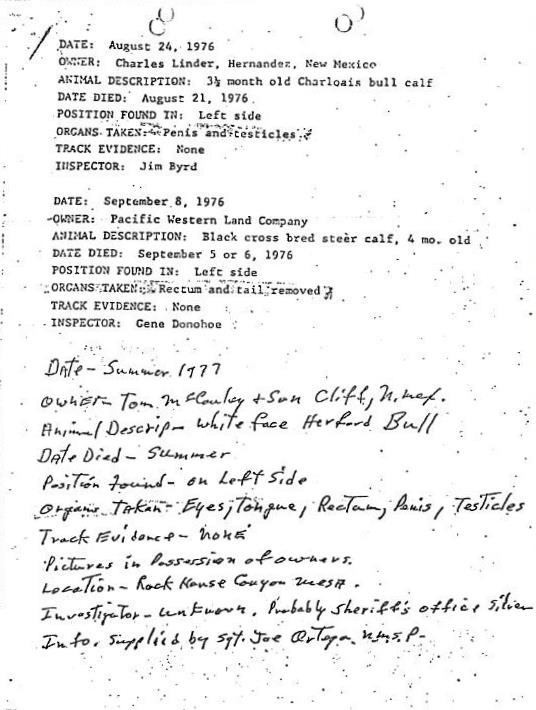 DATE: August 24, 1976
OWNER: Charles Linder, Hernandez, New Mexico
ANIMAL DESCRIPTION: 3½ month old Charloais bull calf
DATE DIED: August 21, 1976
POSITION FOUND IN: Left side
ORGANS TAKEN: Penis and testicles
TRACK EVIDENCE: None
INSPECTOR: Jim Byrd
DATE: September 8, 1976
OWNER: Pacific Western Land Company
ANIMAL DESCRIPTION: Black cross bred steer calf, 4 mo. old
DATE DIED: September 5 or 6, 1976
POSITION FOUND IN: Left side
ORGANS TAKEN: Rectum and tail removed
TRACK EVIDENCE: None
INSPECTOR: Gene Donohoe
Date - Summer 1977
Owner - Tom McCauley + Son Cliff, N. Mex.
Animal Descrip - White face Herford Bull
Date Died - Summer
Position found - on Left Side
Organs Taken - Eyes, Tongue, Rectum, Penis, Testicles
Track Evidence - None
Pictures in Possession of owners.
Location - Rock House Canyon mesa.
Investigator - unknown. Probably Sheriff's office Silver
Info. Supplied by Sgt. Joe Ortega N.M.S.P.-